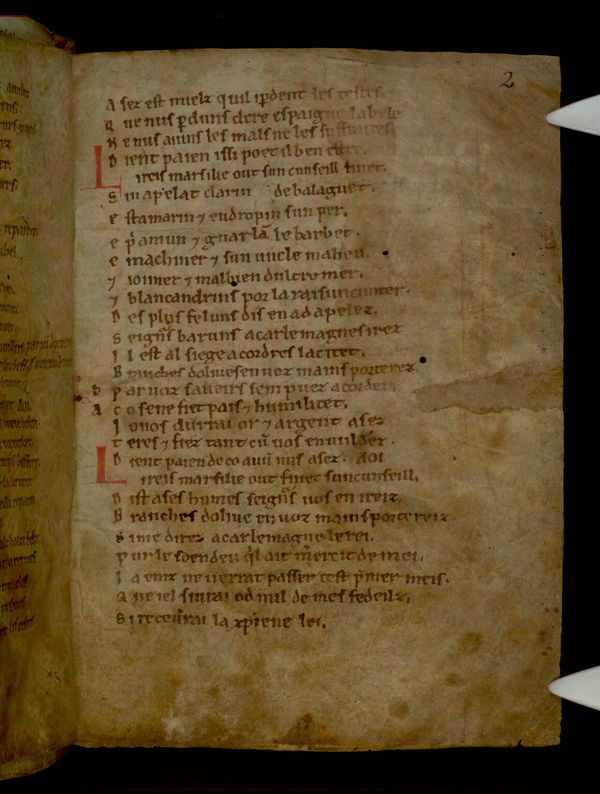 2
A sez est mielz qu il i pdent les testes
Q ue nus pduns clere espaigne la bele
N e nus aiuns les mals ne les suffraites
D ient paien issi poet il ben estre.
L ireis marsilie out sun cunseill finet.
S in apelat clarin de balaguet.
e stamarin ⁊ eudropin sun per.
e p̃amun ⁊ guarlā le barbet.
e machiner ⁊ sun uncle maheu.
⁊ ioüner ⁊ malbien dultremer.
⁊ blancandrins por la raisun cunter.
D es plus feluns dis en ad apelez.
S eign̄s baruns a carlemagnes irez
I l est al siege a cordres la citet.
B ranches dolives en voz mains porterez
P ar voz saveirs sem puez acorder
J o vos durrai or ⁊ argent asez
t eres ⁊ fiez tant cū vos en vuldrez.
D ient paien de co avū nus asez. AOI
L ireis marsilie out finet sun cunseill,
D ist a ses humes seign̄s vos en ireiz.
B ranches dolive en voz mains portereiz
S i me direz a carlemagne le rei.
P ur le soen deu q̄l ait m̄ercit de mei.
J a einz ne verrat passer cest p̄mer meis.
Q ue iel sivrai od mil de mes fedeilz.
S i recev̄rai la xpiene lei.